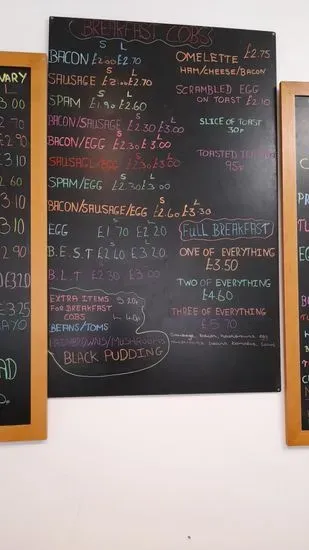 BREAKFAST COBS
S L
BACON £2.00 £2.70
SAUSAGE £2.00 £2.70
SPAM £1.90 £2.60
S L
BACON/SAUSAGE £2.30 £3.00
BACON/EGG £2.30 £3.00
SAUSAGE/EGG £2.30 £3.00
SPAM/EGG £2.30 £3.00
S L
BACON/SAUSAGE/EGG £2.60 £3.30
S L
EGG £1.70 £2.20
B.E.S.T £2.40 £3.20
B.L.T £2.30 £3.00
EXTRA ITEMS S 20p
FOR BREAKFAST
COBS L 40p
BEANS/TOMS
HASHBROWNS/MUSHROOMS
BLACK PUDDING
OMELETTE £2.75
HAM/CHEESE/BACON
SCRAMBLED EGG
ON TOAST £2.10
SLICE OF TOAST
30p
TOASTED
95p
FULL BREAKFAST
ONE OF EVERYTHING
£3.50
TWO OF EVERYTHING
£4.60
THREE OF EVERYTHING
£5.70
Sausage, bacon, hashbrowns, egg
mushrooms, beans, tomatoes,